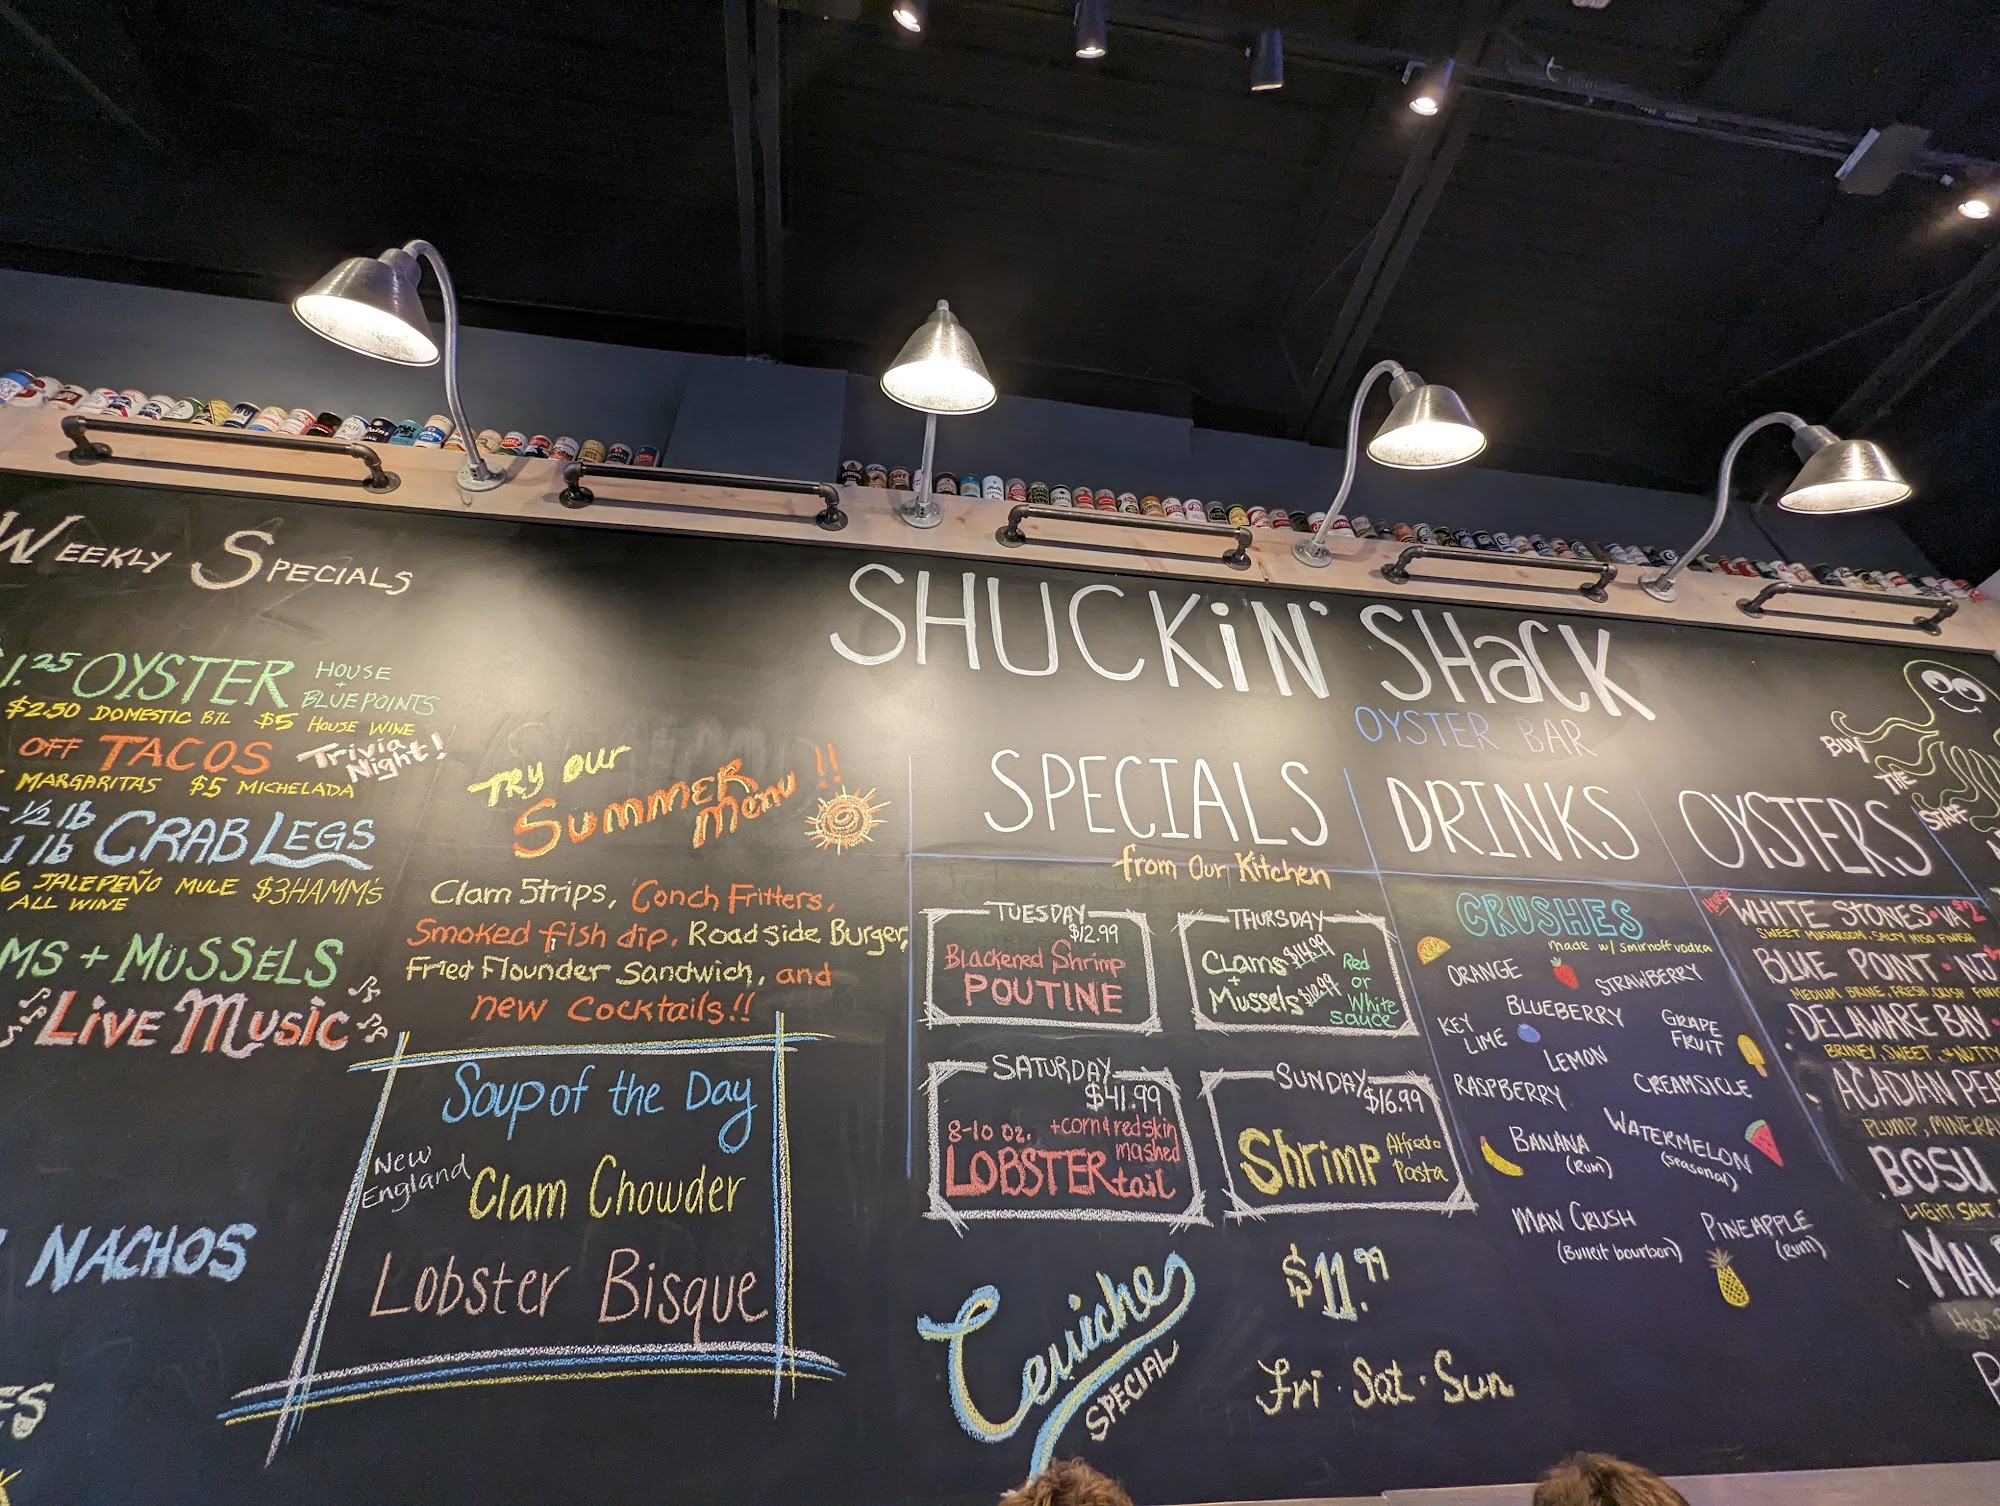 WEEKLY SPECIALS
1.25 OYSTER HOUSE + BLUEPOINTS
$2.50 DOMESTIC BTL $5 HOUSE WINE
OFF TACOS Trivia Night!
MARGARITAS $5 MICHELADA
1/2 lb
1 lb CRAB LEGS
6 JALEPEÑO MULE $3 HAMM'S
ALL WINE
MS + MUSSELS
LIVE MUSIC
NACHOS
TRY our
SUMMER Menu!!
Clam Strips, Conch Fritters,
Smoked fish dip, Roadside Burger,
Fried Flounder Sandwich, and
new Cocktails!!
Soup of the Day
New England Clam Chowder
Lobster Bisque
SHUCKiN' SHaCK
OYSTER BAR
SPECIALS
from Our Kitchen
TUESDAY
$12.99
Blackened Shrimp
POUTINE
THURSDAY
CLAMS $14.99
+
Mussels
Red
or
White
sauce
SATURDAY
$41.99
8-10 oz. + corn & redskin
mashed
LOBSTER tail
SUNDAY
$16.99
Shrimp Alfredo
Pasta
Ceviche
SPECIAL
$11.99
Fri · Sat · Sun
DRINKS
CRUSHES
made w/ smirnoff vodka
ORANGE
STRAWBERRY
BLUEBERRY
KEY
LIME
GRAPE
FRUIT
LEMON
RASPBERRY
CREAMSICLE
BANANA
(rum)
WATERMELON
(seasonal)
MAN CRUSH
(Bulleit bourbon)
PINEAPPLE
(rum)
OYSTERS
HOUSE WHITE STONES · VA $2
SWEET MUSHROOM, SALTY MISO FINISH
BLUE POINT · NJ
MEDIUM BRINE, FRESH, CRISP FINIS
DELAWARE BAY ·
BRINEY, SWEET, + NUTTY
ACADIAN PEA
PLUMP, MINERA
BOSU
LIGHT SALT
MAL
High
BUY
THE
STAFF